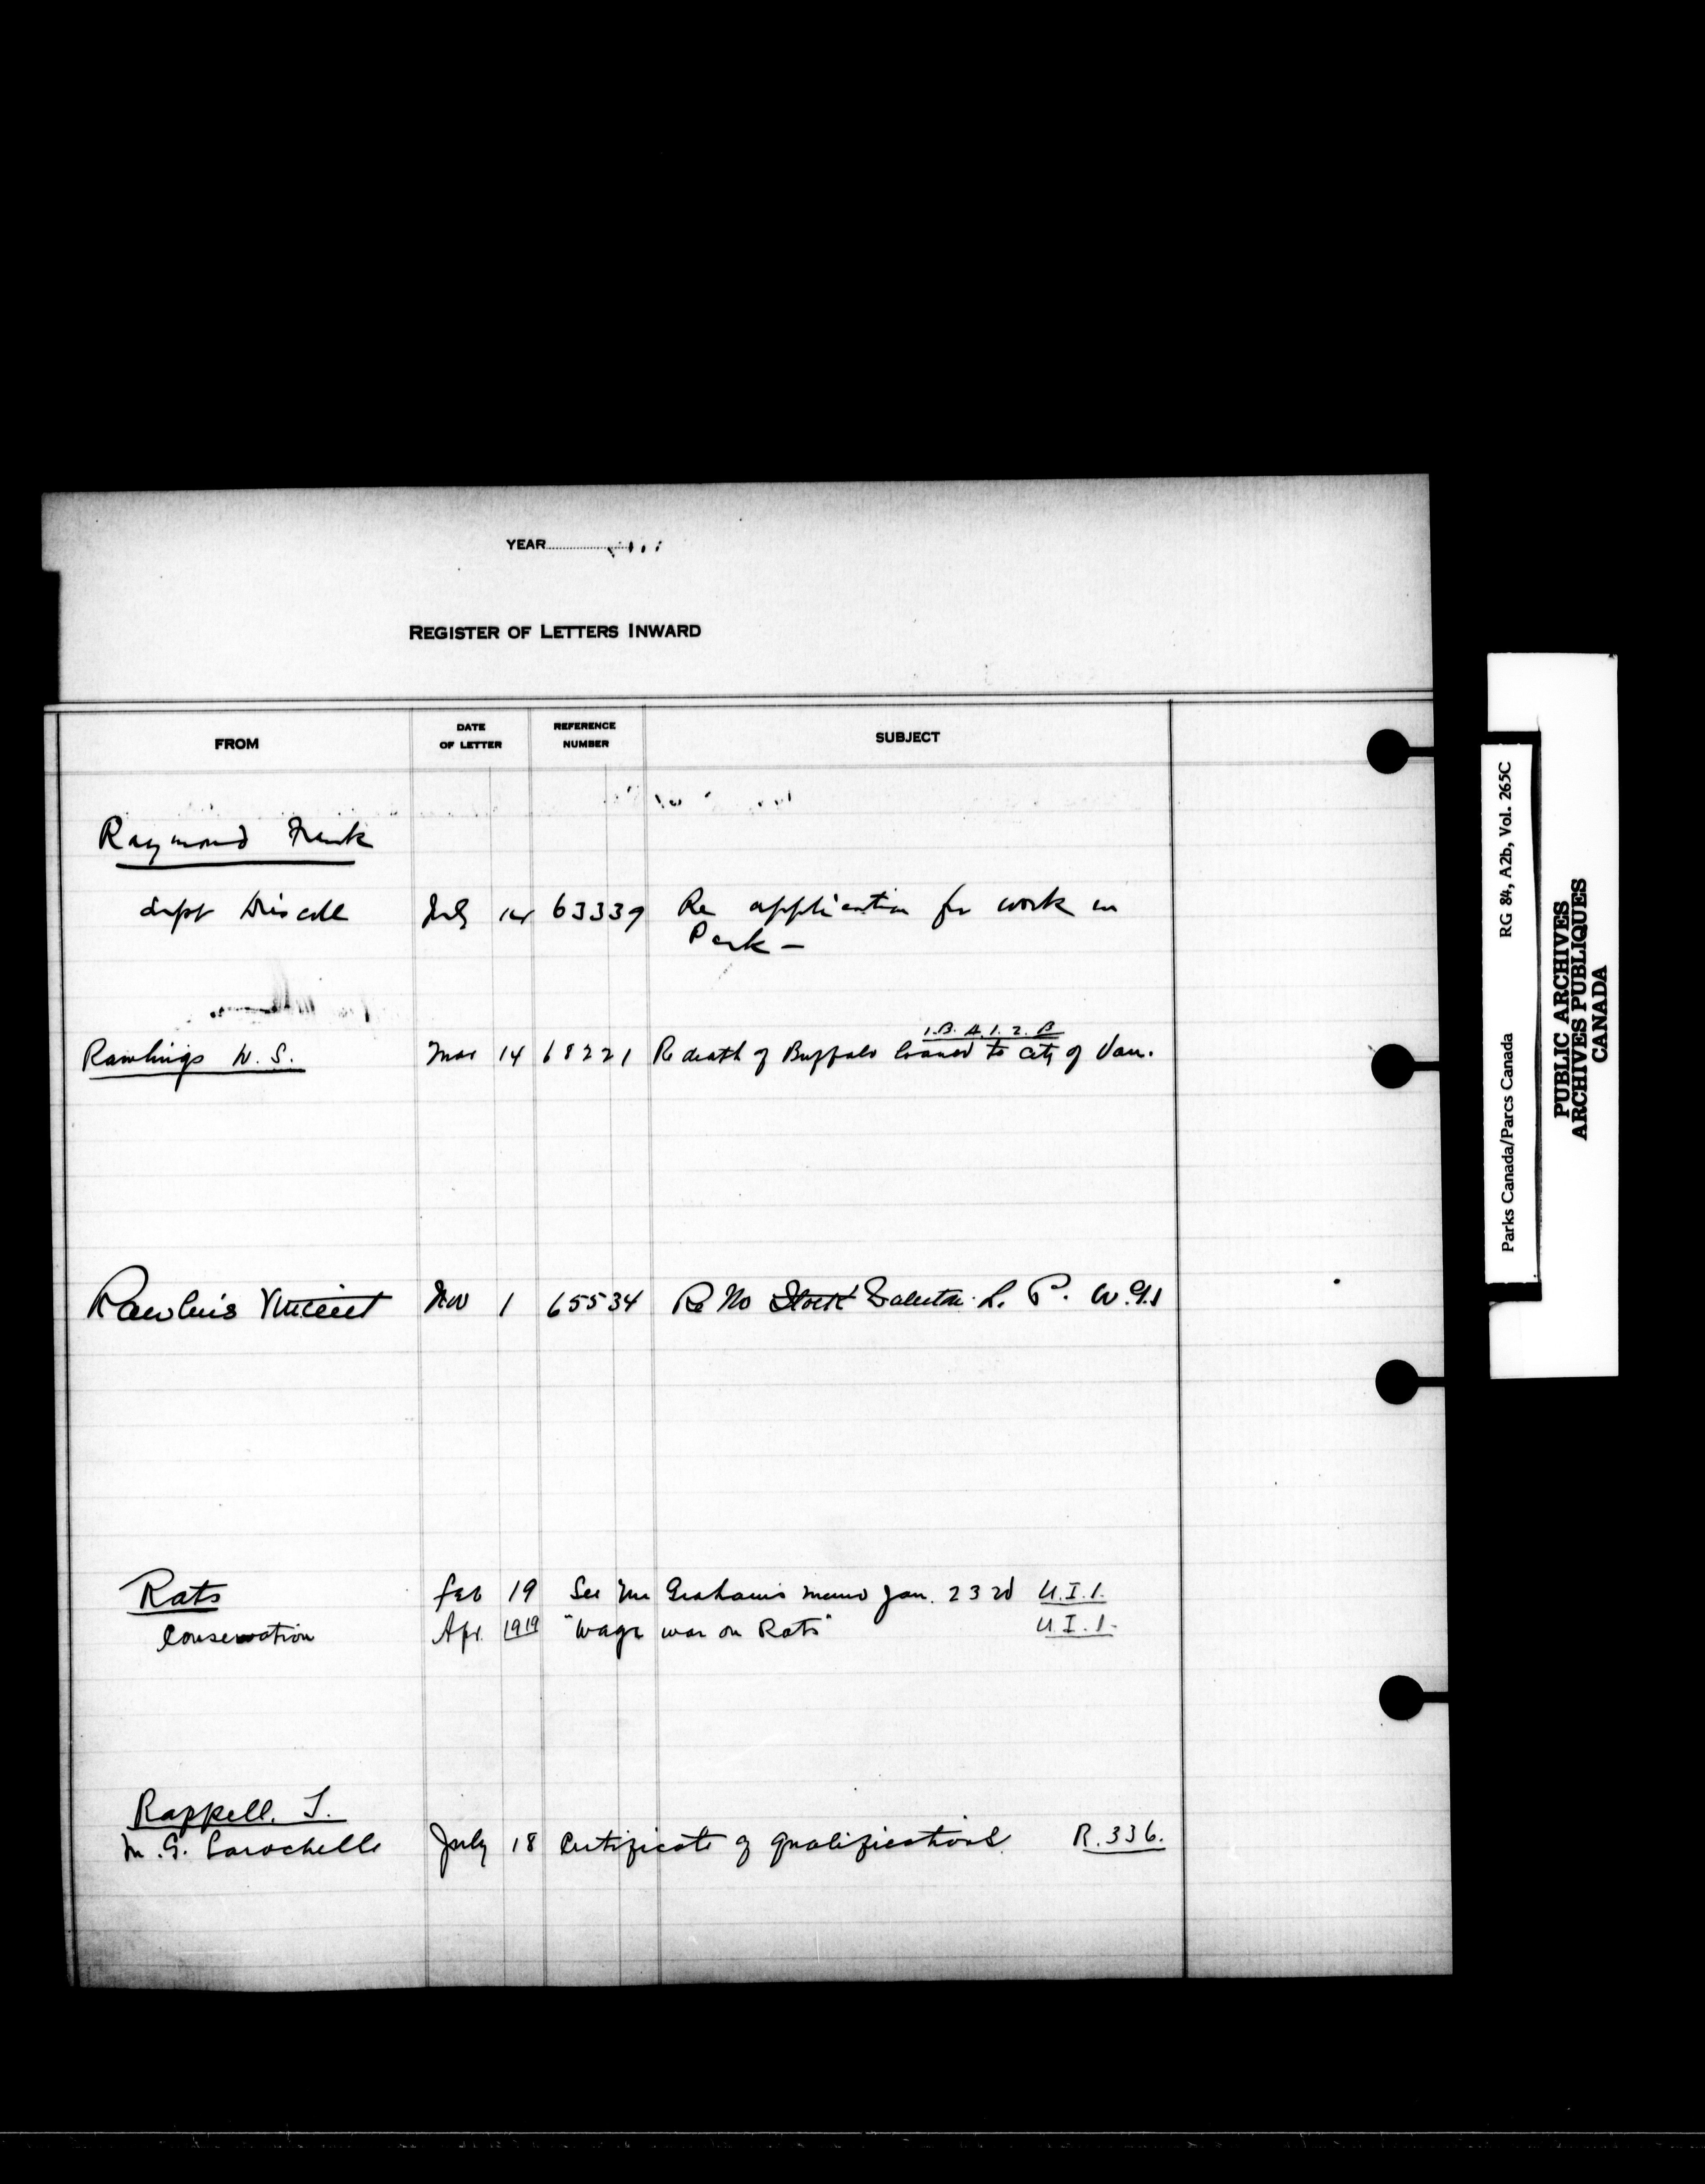 YEAR
REGISTER OF LETTERS INWARD
FROM DATE OF LETTER REFERENCE NUMBER SUBJECT
Raymond Frank
Supt Driscoll July 14 63339 Re application for work in
Park –
1.B.A.1.2.B
Rawlings W. S. Mar 14 68221 Re death of Buffalo loaned to city of Van.
Vincent Nov 1 65534 Re No L. P.
Rats Feb 19 See Mr Graham's memo Jan. 23rd U.I.1.
Conservation Apr. 1919 "Wage war on Rats" U.I.1.
Rappell. J.
M. G. Larochelle July 18 Certificate of qualifications. R.336.
Parks Canada/Parcs Canada RG 84, A2b, Vol. 265C
PUBLIC ARCHIVES
ARCHIVES PUBLIQUES
CANADA